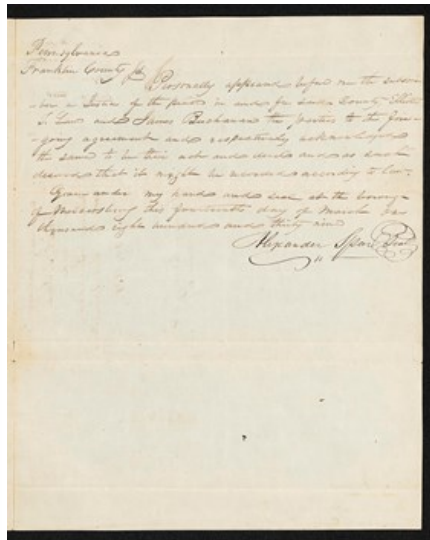 Pennsylvania
Franklin County ss Personally appeared before me the subscri-
-ber a Justice of the peace in and for said County Elliott
T. Lane and James Buchanan the parties to the fore-
-going agreement and respectively acknowledged
the same to be their act and deed and as such
desired that it might be recorded according to law.
Given under my hand and seal at the borough
of Mercersburg this fourteenth day of March one
thousand eight hundred and thirty nine
Alexander Seal